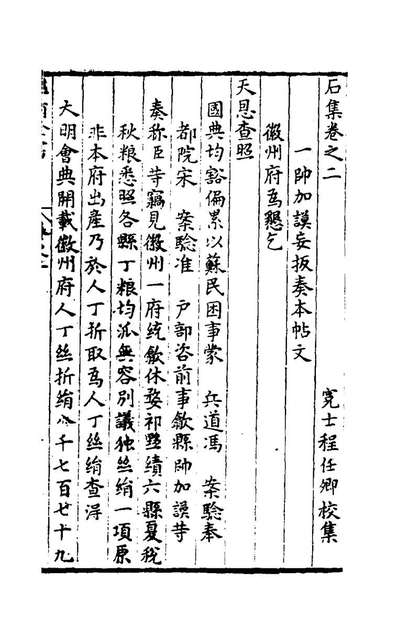 石集卷之二
一帥加謨妄扳奏本帖文　　寃士程任卿校集
徽州府爲懇乞
天恩查照
國典均豁偏累以蘇民困事蒙　兵道馮　案驗奉
都院宋　案驗准　戸部咨前事歙縣帥加謨䓁
奏称臣䓁竊見徽州一府統歙休婺祁黟績六縣夏税
秋粮悉照各縣丁粮均派無容别議独丝絹一項原
非本府出産乃於人丁折取爲人丁丝絹查淂
大明會典開載徽州府人丁丝折絹八千七百廿十九